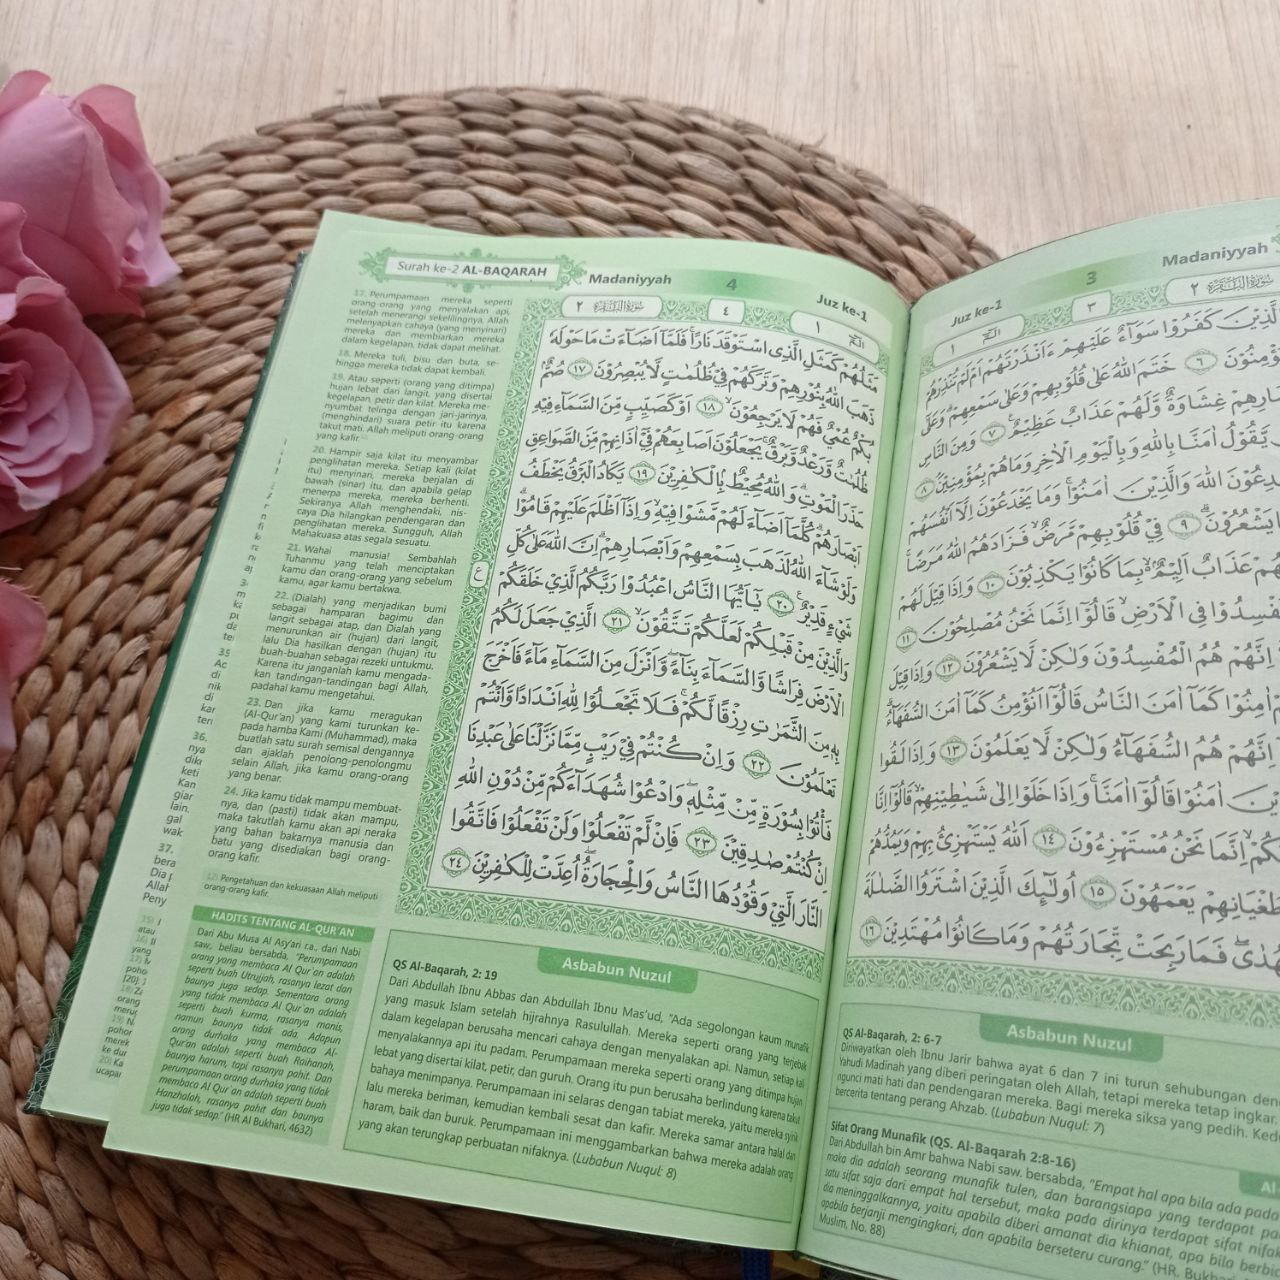 Surah ke-2 AL-BAQARAH
Madaniyyah
4
Juz ke-1
17. Perumpamaan mereka seperti
orang-orang yang menyalakan api,
setelah menerangi sekelilingnya, Allah
melenyapkan cahaya (yang menyinari)
mereka dan membiarkan mereka
dalam kegelapan, tidak dapat melihat.
18. Mereka tuli, bisu dan buta, se-
hingga mereka tidak dapat kembali.
19. Atau seperti (orang yang ditimpa)
hujan lebat dari langit, yang disertai
kegelapan, petir dan kilat. Mereka me-
nyumbat telinga dengan jari-jarinya,
(menghindari) suara petir itu karena
takut mati. Allah meliputi orang-orang
yang kafir.
20. Hampir saja kilat itu menyambar
penglihatan mereka. Setiap kali (kilat
itu) menyinari, mereka berjalan di
bawah (sinar) itu, dan apabila gelap
menerpa mereka, mereka berhenti.
Sekiranya Allah menghendaki, nis-
caya Dia hilangkan pendengaran dan
penglihatan mereka. Sungguh, Allah
Mahakuasa atas segala sesuatu.
21. Wahai manusia! Sembahlah
Tuhanmu yang telah menciptakan
kamu dan orang-orang yang sebelum
kamu, agar kamu bertakwa.
22. (Dialah) yang menjadikan bumi
sebagai hamparan bagimu dan
langit sebagai atap, dan Dialah yang
menurunkan air (hujan) dari langit,
lalu Dia hasilkan dengan (hujan) itu
buah-buahan sebagai rezeki untukmu.
Karena itu janganlah kamu mengada-
kan tandingan-tandingan bagi Allah,
padahal kamu mengetahui.
23. Dan jika kamu meragukan
(Al-Qur'an) yang kami turunkan ke-
pada hamba Kami (Muhammad), maka
buatlah satu surah semisal dengannya
dan ajaklah penolong-penolongmu
selain Allah, jika kamu orang-orang
yang benar.
24. Jika kamu tidak mampu membuat-
nya, dan (pasti) tidak akan mampu,
maka takutlah kamu akan api neraka
yang bahan bakarnya manusia dan
batu yang disediakan bagi orang-
orang kafir.
12) Pengetahuan dan kekuasaan Allah meliputi
orang-orang kafir.
HADITS TENTANG AL-QUR'AN
Dari Abu Musa Al Asy'ari r.a., dari Nabi
saw. beliau bersabda, "Perumpamaan
orang yang membaca Al Qur'an adalah
seperti buah Utrujjah, rasanya lezat dan
baunya juga sedap. Sementara orang
yang tidak membaca Al Qur'an adalah
seperti buah kurma, rasanya manis,
namun baunya tidak ada. Adapun
orang durhaka yang membaca Al-
Qur'an adalah seperti buah Raihanah,
baunya harum, tapi rasanya pahit. Dan
perumpamaan orang durhaka yang tidak
membaca Al Qur'an adalah seperti buah
Hanzhalah, rasanya pahit dan baunya
juga tidak sedap." (HR Al Bukhari, 4632)
٢ سورة البقرة
٤
الٓمٓ ١
مَثَلُهُمْ كَمَثَلِ الَّذِى اسْتَوْقَدَ نَارًاۚ فَلَمَّآ اَضَاۤءَتْ مَاحَوْلَهٗ
ذَهَبَ اللّٰهُ بِنُوْرِهِمْ وَتَرَكَهُمْ فِيْ ظُلُمٰتٍ لَّا يُبْصِرُوْنَ ١٧ صُمٌّۢ
بُكْمٌ عُمْيٌ فَهُمْ لَا يَرْجِعُوْنَۙ ١٨ اَوْ كَصَيِّبٍ مِّنَ السَّمَاۤءِ فِيْهِ
ظُلُمٰتٌ وَّرَعْدٌ وَّبَرْقٌۚ يَجْعَلُوْنَ اَصَابِعَهُمْ فِيْٓ اٰذَانِهِمْ مِّنَ الصَّوَاعِقِ
حَذَرَ الْمَوْتِۗ وَاللّٰهُ مُحِيْطٌۢ بِالْكٰفِرِيْنَ ١٩ يَكَادُ الْبَرْقُ يَخْطَفُ
اَبْصَارَهُمْۗ كُلَّمَآ اَضَاۤءَ لَهُمْ مَّشَوْا فِيْهِۙ وَاِذَآ اَظْلَمَ عَلَيْهِمْ قَامُوْاۗ
وَلَوْ شَاۤءَ اللّٰهُ لَذَهَبَ بِسَمْعِهِمْ وَاَبْصَارِهِمْۗ اِنَّ اللّٰهَ عَلٰى كُلِّ
شَيْءٍ قَدِيْرٌ ٢٠ يٰٓاَيُّهَا النَّاسُ اعْبُدُوْا رَبَّكُمُ الَّذِيْ خَلَقَكُمْ
وَالَّذِيْنَ مِنْ قَبْلِكُمْ لَعَلَّكُمْ تَتَّقُوْنَۙ ٢١ الَّذِيْ جَعَلَ لَكُمُ
الْاَرْضَ فِرَاشًا وَّالسَّمَاۤءَ بِنَاۤءًۖ وَّاَنْزَلَ مِنَ السَّمَاۤءِ مَاۤءً فَاَخْرَجَ
بِهٖ مِنَ الثَّمَرٰتِ رِزْقًا لَّكُمْۚ فَلَا تَجْعَلُوْا لِلّٰهِ اَنْدَادًا وَّاَنْتُمْ
تَعْلَمُوْنَ ٢٢ وَاِنْ كُنْتُمْ فِيْ رَيْبٍ مِّمَّا نَزَّلْنَا عَلٰى عَبْدِنَا
فَأْتُوْا بِسُوْرَةٍ مِّنْ مِّثْلِهٖۖ وَادْعُوْا شُهَدَاۤءَكُمْ مِّنْ دُوْنِ اللّٰهِ
اِنْ كُنْتُمْ صٰدِقِيْنَ ٢٣ فَاِنْ لَّمْ تَفْعَلُوْا وَلَنْ تَفْعَلُوْا فَاتَّقُوا
النَّارَ الَّتِيْ وَقُوْدُهَا النَّاسُ وَالْحِجَارَةُۖ اُعِدَّتْ لِلْكٰفِرِيْنَ ٢٤
ع
Asbabun Nuzul
QS Al-Baqarah, 2: 19
Dari Abdullah Ibnu Abbas dan Abdullah Ibnu Mas'ud, "Ada segolongan kaum munafik
yang masuk Islam setelah hijrahnya Rasulullah. Mereka seperti orang yang terjebak
dalam kegelapan berusaha mencari cahaya dengan menyalakan api. Namun, setiap kali
menyalakannya api itu padam. Perumpamaan mereka seperti orang yang ditimpa hujan
lebat yang disertai kilat, petir, dan guruh. Orang itu pun berusaha berlindung karena takut
bahaya menimpanya. Perumpamaan ini selaras dengan tabiat mereka, yaitu mereka syirik
lalu mereka beriman, kemudian kembali sesat dan kafir. Mereka samar antara halal dan
haram, baik dan buruk. Perumpamaan ini menggambarkan bahwa mereka adalah orang
yang akan terungkap perbuatan nifaknya. (Lubabun Nuqul: 8)
Juz ke-1
3
Madaniyyah
٢ سورة البقرة
٣
الٓمٓ ١
الَّذِيْنَ كَفَرُوْا سَوَاۤءٌ عَلَيْهِمْ ءَاَنْذَرْتَهُمْ اَمْ لَمْ تُنْذِرْهُمْ
يُؤْمِنُوْنَ ٦ خَتَمَ اللّٰهُ عَلٰى قُلُوْبِهِمْ وَعَلٰى سَمْعِهِمْۗ وَعَلٰٓى
غِشَاوَةٌ وَّلَهُمْ عَذَابٌ عَظِيْمٌ ٧ وَمِنَ النَّاسِ
يَّقُوْلُ اٰمَنَّا بِاللّٰهِ وَبِالْيَوْمِ الْاٰخِرِ وَمَا هُمْ بِمُؤْمِنِيْنَۘ ٨
اللّٰهَ وَالَّذِيْنَ اٰمَنُوْاۚ وَمَا يَخْدَعُوْنَ اِلَّآ اَنْفُسَهُمْ
يَشْعُرُوْنَۗ ٩ فِيْ قُلُوْبِهِمْ مَّرَضٌۙ فَزَادَهُمُ اللّٰهُ مَرَضًاۚ
عَذَابٌ اَلِيْمٌ ۢبِمَا كَانُوْا يَكْذِبُوْنَ ١٠ وَاِذَا قِيْلَ لَهُمْ
فِى الْاَرْضِۙ قَالُوْٓا اِنَّمَا نَحْنُ مُصْلِحُوْنَ ١١
اِنَّهُمْ هُمُ الْمُفْسِدُوْنَ وَلٰكِنْ لَّا يَشْعُرُوْنَ ١٢ وَاِذَا قِيْلَ
اٰمِنُوْا كَمَآ اٰمَنَ النَّاسُ قَالُوْٓا اَنُؤْمِنُ كَمَآ اٰمَنَ السُّفَهَاۤءُۗ
اِنَّهُمْ هُمُ السُّفَهَاۤءُ وَلٰكِنْ لَّا يَعْلَمُوْنَ ١٣ وَاِذَا لَقُوا
اٰمَنُوْا قَالُوْٓا اٰمَنَّاۚ وَاِذَا خَلَوْا اِلٰى شَيٰطِيْنِهِمْۙ قَالُوْٓا اِنَّا
اِنَّمَا نَحْنُ مُسْتَهْزِءُوْنَ ١٤ اَللّٰهُ يَسْتَهْزِئُ بِهِمْ وَيَمُدُّهُمْ
طُغْيَانِهِمْ يَعْمَهُوْنَ ١٥ اُولٰۤىِٕكَ الَّذِيْنَ اشْتَرَوُا الضَّلٰلَةَ
فَمَا رَبِحَتْ تِّجَارَتُهُمْ وَمَا كَانُوْا مُهْتَدِيْنَ ١٦
Asbabun Nuzul
QS Al-Baqarah, 2: 6-7
Diriwayatkan oleh Ibnu Jarir bahwa ayat 6 dan 7 ini turun sehubungan
Yahudi Madinah yang diberi peringatan oleh Allah, tetapi mereka tetap ingkar,
ngunci mati hati dan pendengaran mereka. Bagi mereka siksa yang pedih.
bercerita tentang perang Ahzab. (Lubabun Nuqul: 7)
Sifat Orang Munafik (QS. Al-Baqarah 2:8-16)
Dari Abdullah bin Amr bahwa Nabi saw. bersabda, "Empat hal apa bila ada pada
maka dia adalah seorang munafik tulen, dan barangsiapa yang terdapat
satu sifat saja dari empat hal tersebut, maka pada dirinya terdapat sifat
dia meninggalkannya, yaitu apabila diberi amanat dia khianat, apa bila
apabila berjanji mengingkari, dan apabila berseteru curang." (HR.
Muslim, No. 88)